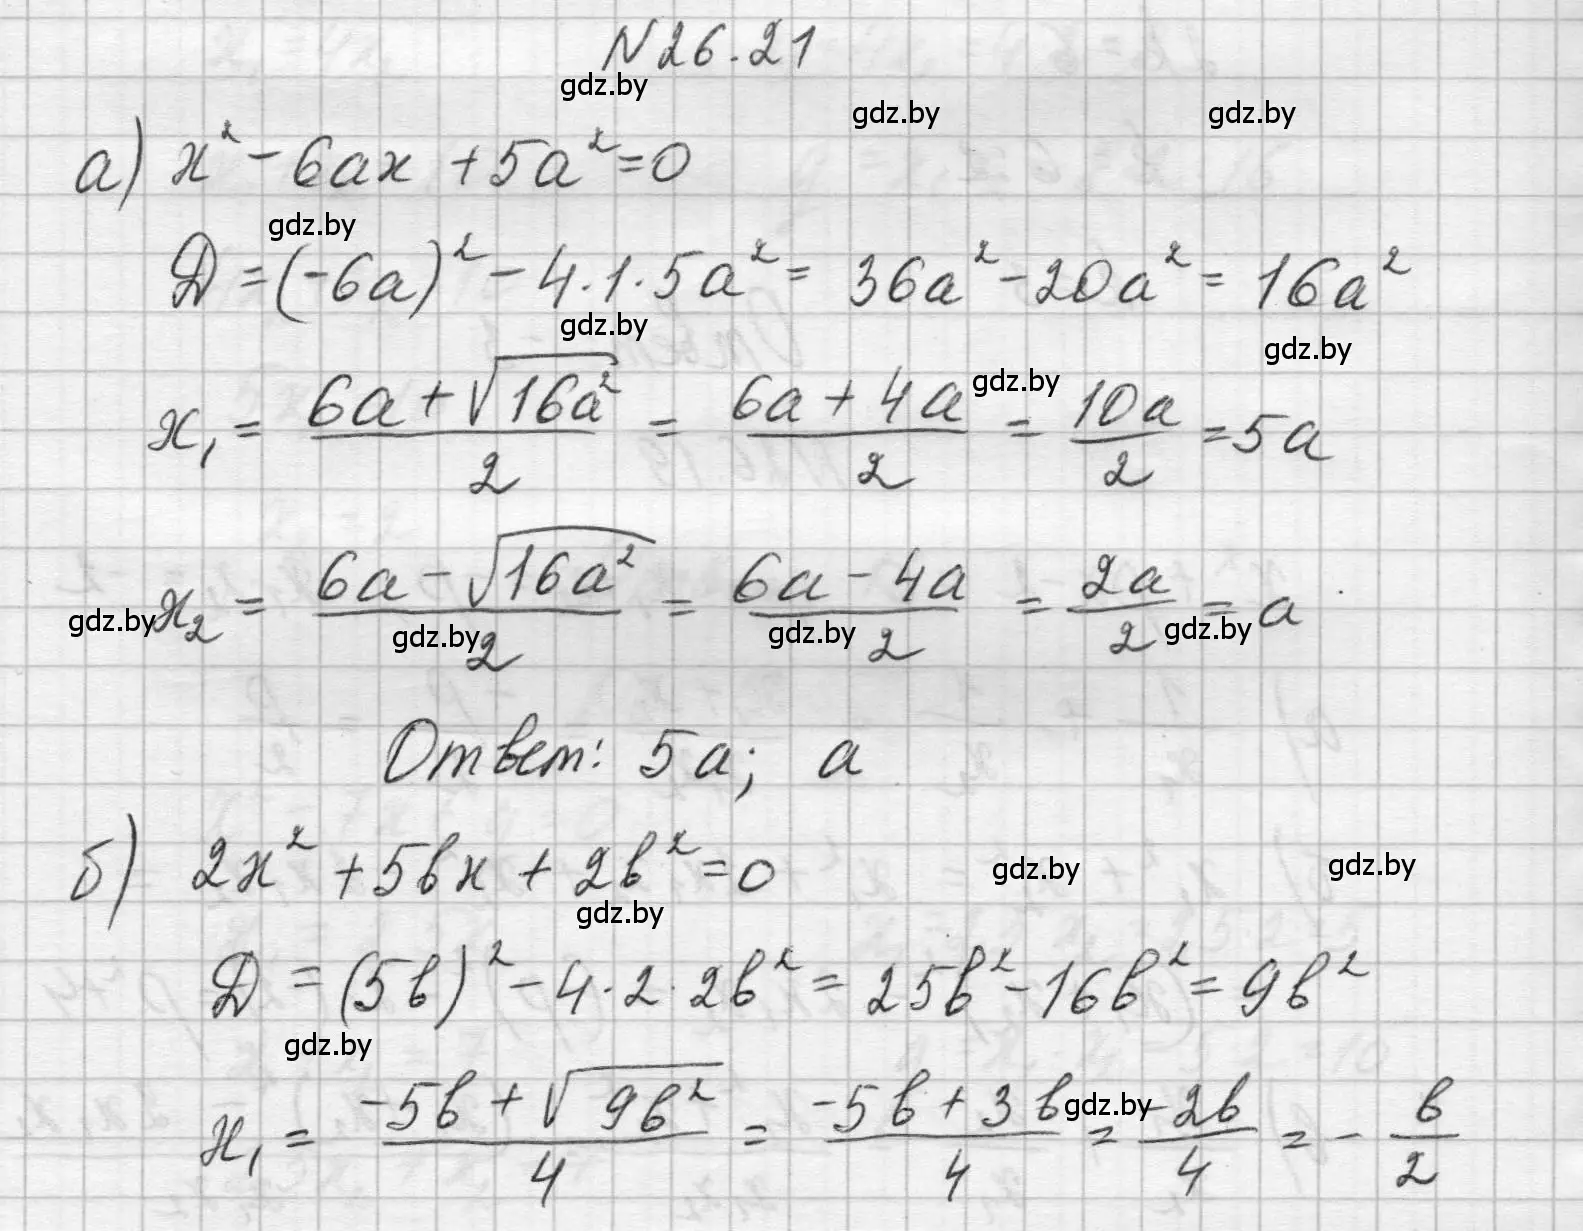 N 26.21
gdz.by gdz.by gdz.by
а) x² - 6ax + 5a² = 0
gdz.by
Д = (-6a)² - 4·1·5a² = 36a² - 20a² = 16a²
gdz.by gdz.by
x₁ = (6a + √16a²)/2 = (6a + 4a)/2 = 10a/2 = 5a
gdz.by
x₂ = (6a - √16a²)/2 = (6a - 4a)/2 = 2a/2 = a
gdz.by gdz.by gdz.by gdz.by
Ответ: 5a; a
б) 2x² + 5bx + 2b² = 0
gdz.by gdz.by gdz.by
Д = (5b)² - 4·2·2b² = 25b² - 16b² = 9b²
gdz.by
x₁ = (-5b + √9b²)/4 = (-5b + 3b)/4 = -2b/4 = - b/2
gdz.by